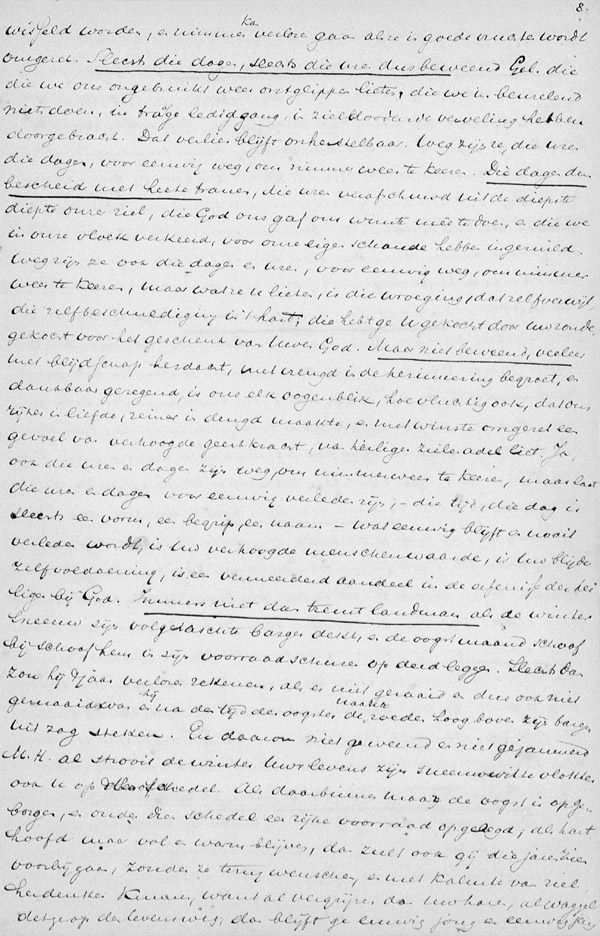 8.
wisseld worden, en nimmer kan verloren gaan als ze in goede munt wordt
omgezet. Slechts die dagen, slechts die uren dus beweend Gel. die
die we ons ongebruikt weer ontglippen lieten, die we in beuzelend
niets doen, in trage ledidgang, in zieldoodende verveling hebben
doorgebracht. Dat verlies blijft onherstelbaar. Weg zijn ze, die uren
die dagen, voor eeuwig weg, om nimmer weer te keeren. Die dagen dus
bescheid met heete tranen, die uren verafschuwd uit de diepste
diepte onzer ziel, die God ons gaf om winste mee te doen, en die we
in onze vloek verkeerd, voor onze eigen schande hebben ingeruild.
Weg zijn ze ook die dagen en uren, voor eeuwig weg, om nimmer
weer te keeren, maar wat ze u lieten, is die wroeging, dat zelfverwijt
die zelfbeschuldiging in 't hart; die hebt ge U gekocht door uw zonde,
gekocht voor het geschenk van Uwen God. Maar niet beweend, veeleer
met blijdschap herdacht, met vreugd in de herinnering begroet, en
dankbaar gezegend, is ons elk oogenblik, hoe vluchtig ook, dat ons
rijker in liefde, reiner in deugd maakte, en met winste omgezet een
gevoel van verhoogde geestkracht, van heiliger zieleadel liet. Ja,
ook die uren en dagen zijn weg, om nimmer weer te keeren, maar laat
die uren en dagen voor eeuwig verleden zijn, – die tijd, die dag is
slechts een vorm, een begrip, een naam – wat eeuwig blijft en nooit
verleden wordt, is Uw verhoogde menschenwaarde, is Uw blijde
zelfvoldoening, is een vermeerderd aandeel in de erfenis der hei
ligen bij God. Immers niet dan treurt landman als de winter
sneeuw zijn volgetaschte bargen dekt, en de oogstmaand schoof
bij schoof hem in zijn voorraadschuren op deed leggen. Slechts dan
zou hij 't jaar verloren rekenen, als er niet gezaaid en dus ook niet
gemaaid was en hij na den tijd des oogstes de naakte roeden hoog boven zijn bargen
uit zag steken. En daarom niet geweend en niet gejammerd
M. H. al strooit de winter Uws levens zijn sneeuwwitte vlokken
ook u op den schedel. Als daarbinnen maar de oogst is opge-
borgen, en onder dien schedel een rijke voorraad opgelegd; als hart
hoofd maar vol en warm blijven, dan zult ook gij die jaren zien
voorbijgaan, zonder ze terug wenschen, en met kalmte van ziel
herdenken kunnen, want al vergrijzen dan uw haren, al waggel
det ge op den levensweg, dan blijft ge eeuwig jong en eeuwig